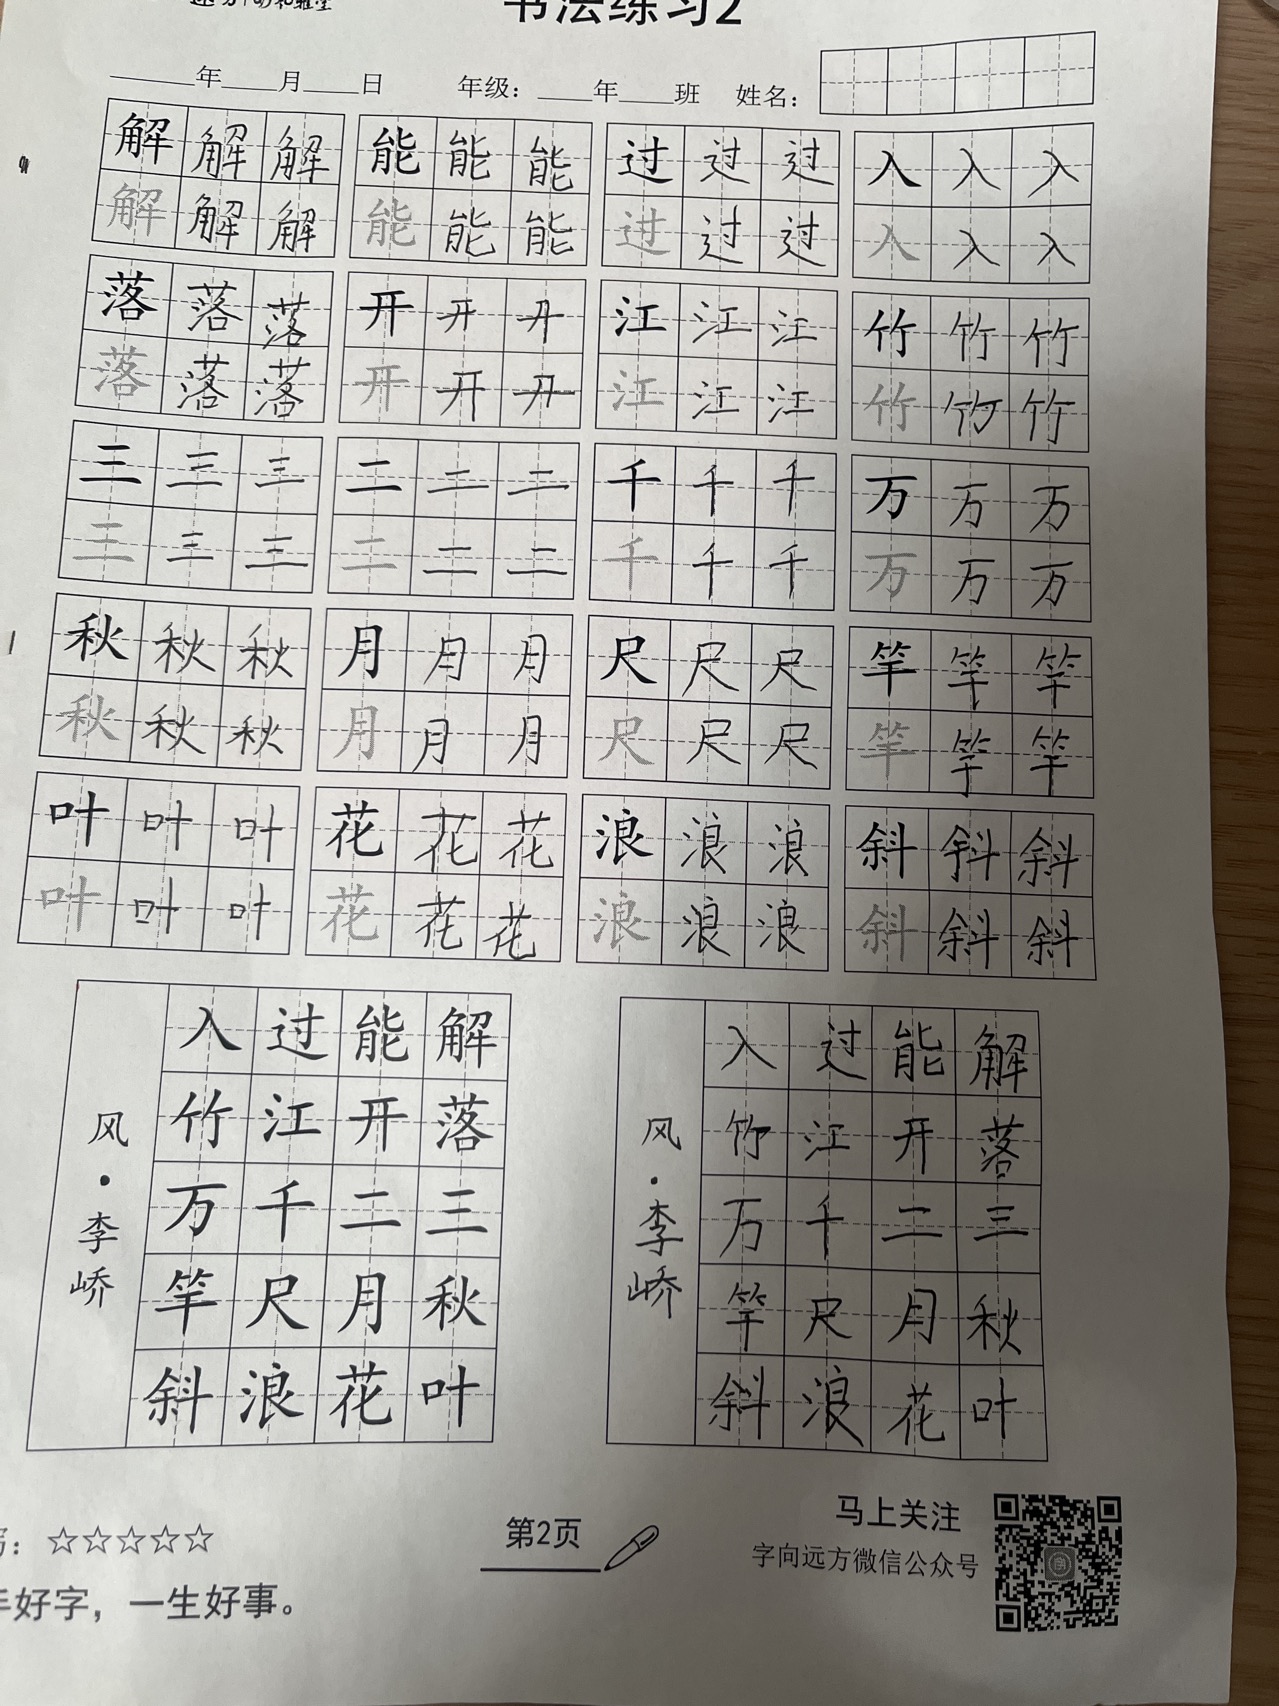 书法练习2
年 月 日 年级： 年 班 姓名：
解解解 能能能 过过过 入入入
解解解 能能能 过过过 入入入
落落落 开开开 江江江 竹竹竹
落落落 开开开 江江江 竹竹竹
三三三 二二二 千千千 万万万
三三三 二二二 千千千 万万万
秋秋秋 月月月 尺尺尺 竿竿竿
秋秋秋 月月月 尺尺尺 竿竿竿
叶叶叶 花花花 浪浪浪 斜斜斜
叶叶叶 花花花 浪浪浪 斜斜斜
解落三秋叶
能开二月花
过江千尺浪
入竹万竿斜
风·李峤
解落三秋叶
能开二月花
过江千尺浪
入竹万竿斜
风·李峤
：☆☆☆☆☆
第2页
马上关注
字向远方微信公众号
手好字，一生好事。